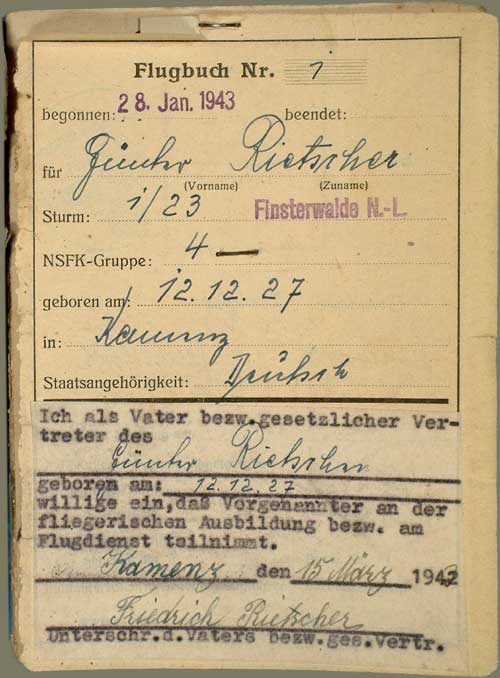 Flugbuch Nr. 1
begonnen: 28. Jan. 1943 beendet:
für Günter Rietscher
(Vorname) (Zuname)
Sturm: 1/23 Finsterwalde N.-L.
NSFK-Gruppe: 4
geboren am: 12.12.27
in: Kamenz
Staatsangehörigkeit: Deutsch
Ich als Vater bezw.gesetzlicher Ver-
treter des
Günter Rietscher
geboren am: 12.12.27
willige ein,daß Vorgenannter an der
fliegerischen Ausbildung bezw. am
Flugdienst teilnimmt.
Kamenz den 15 März 1943
Friedrich Rietscher
Unterschr.d.Vaters bezw.ges.Vertr.